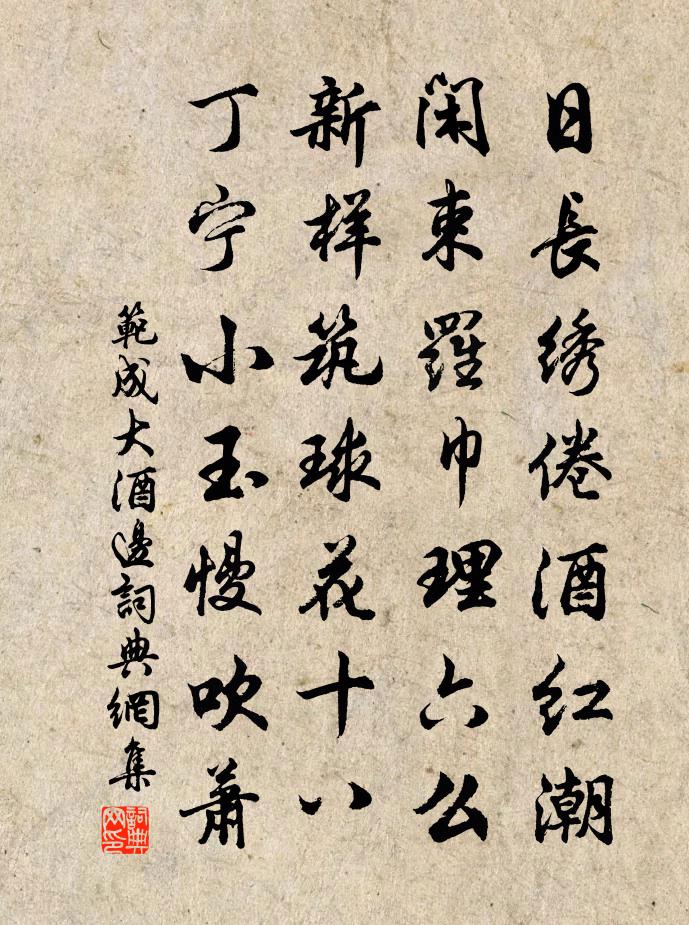 日長绣倦酒红潮
闲束羅巾理六么
新样筑球花十八
丁宁小玉慢吹萧
範成大酒邊詞典網集
詞典网印